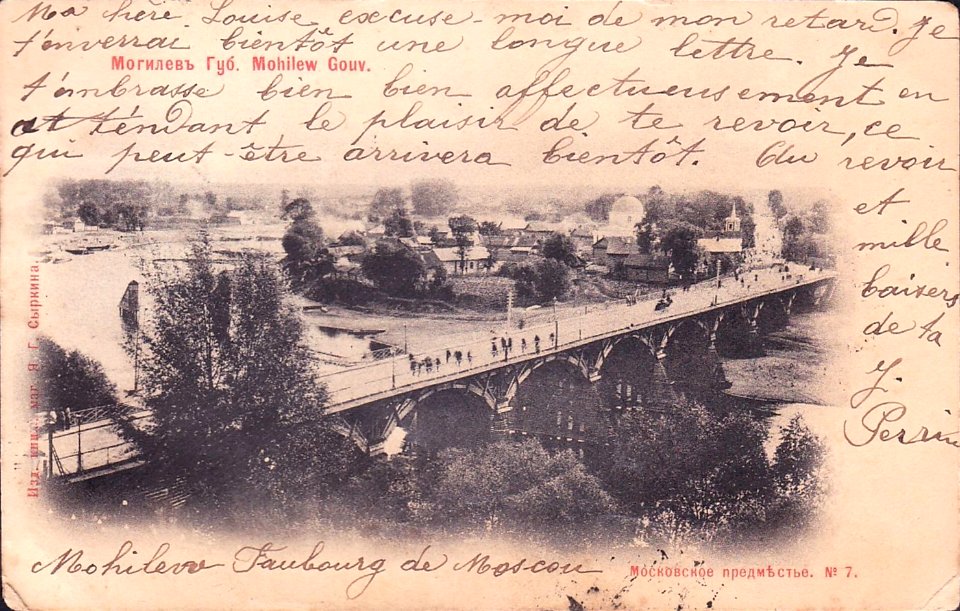 Ma chère Louise excuse-moi de mon retard. Je
t'enverrai bientôt une longue lettre. Je
Могилевъ Губ. Mohilew Gouv.
t'embrasse bien bien affectueusement en
attendant le plaisir de te revoir, ce
qui peut-être arrivera bientôt. Au revoir
et
mille
baisers
de ta
J.
Perrin
Изд. пис. маг. Я. Г. Сыркина
Mohilew Faubourg de Moscou
Московское предмѣстье. № 7.